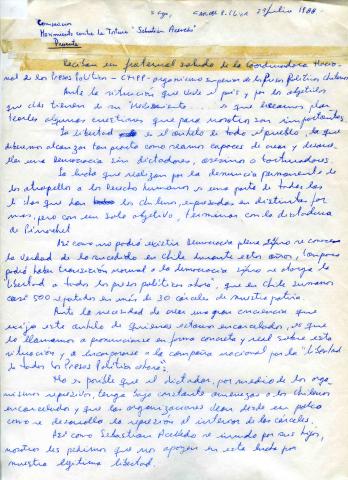 Stgo, CARCEL P. 29 Julio 1988.-
Compañeros
Movimiento contra la Tortura "Sebastián Acevedo"
Presente
Reciban un fraternal saludo de la Coordinadora Nacio-
nal de los Presos Políticos - CNPP - organismo superior de los Presos Políticos chilenos
Ante la situación que vive el país y por los objetivos
que dan tienen de su Movimiento, es que queremos plan
tearles algunas cuestiones que para nosotros son importantes.
La libertad es el anhelo de todo el pueblo, la que
debemos alcanzar tan pronto como seamos capaces de crear y desarro
llar una democracia sin dictadores, asesinos o torturadores.
La lucha que realizan por la denuncia permanente de
los atropellos a los derechos humanos es una parte de todas las
luchas que dan los chilenos, expresadas en distintas for
mas, pero con un solo objetivo, terminar con la dictadura
de Pinochet
Así como no podrá existir democracia plena si no se conoce
la verdad de lo sucedido en Chile durante estos años, tampoco
podrá haber transición normal a la democracia si no se otorga la
"libertad a todos los presos políticos ahora", que en Chile sumamos
casi 500 repartidos en más de 30 cárceles de nuestra patria.
Ante la necesidad de crear una gran conciencia que
exija este anhelo de quienes estamos encarcelados, es que
lo llamamos a pronunciarse en forma concreta y real sobre esta
situación, y a incorporarse a la campaña nacional por la "Libertad
de todos los Presos Políticos ahora".
No es posible que el dictador, por medio de los orga
nismos represivos, tenga bajo constante amenazas a los chilenos
encarcelados y que las organizaciones dean desde un palco
como se desarrolla la represión al interior de las cárceles.
Así como Sebastián Acevedo se inmoló por sus hijos,
nosotros les pedimos que nos apoyen en esta lucha por
nuestra legítima libertad.